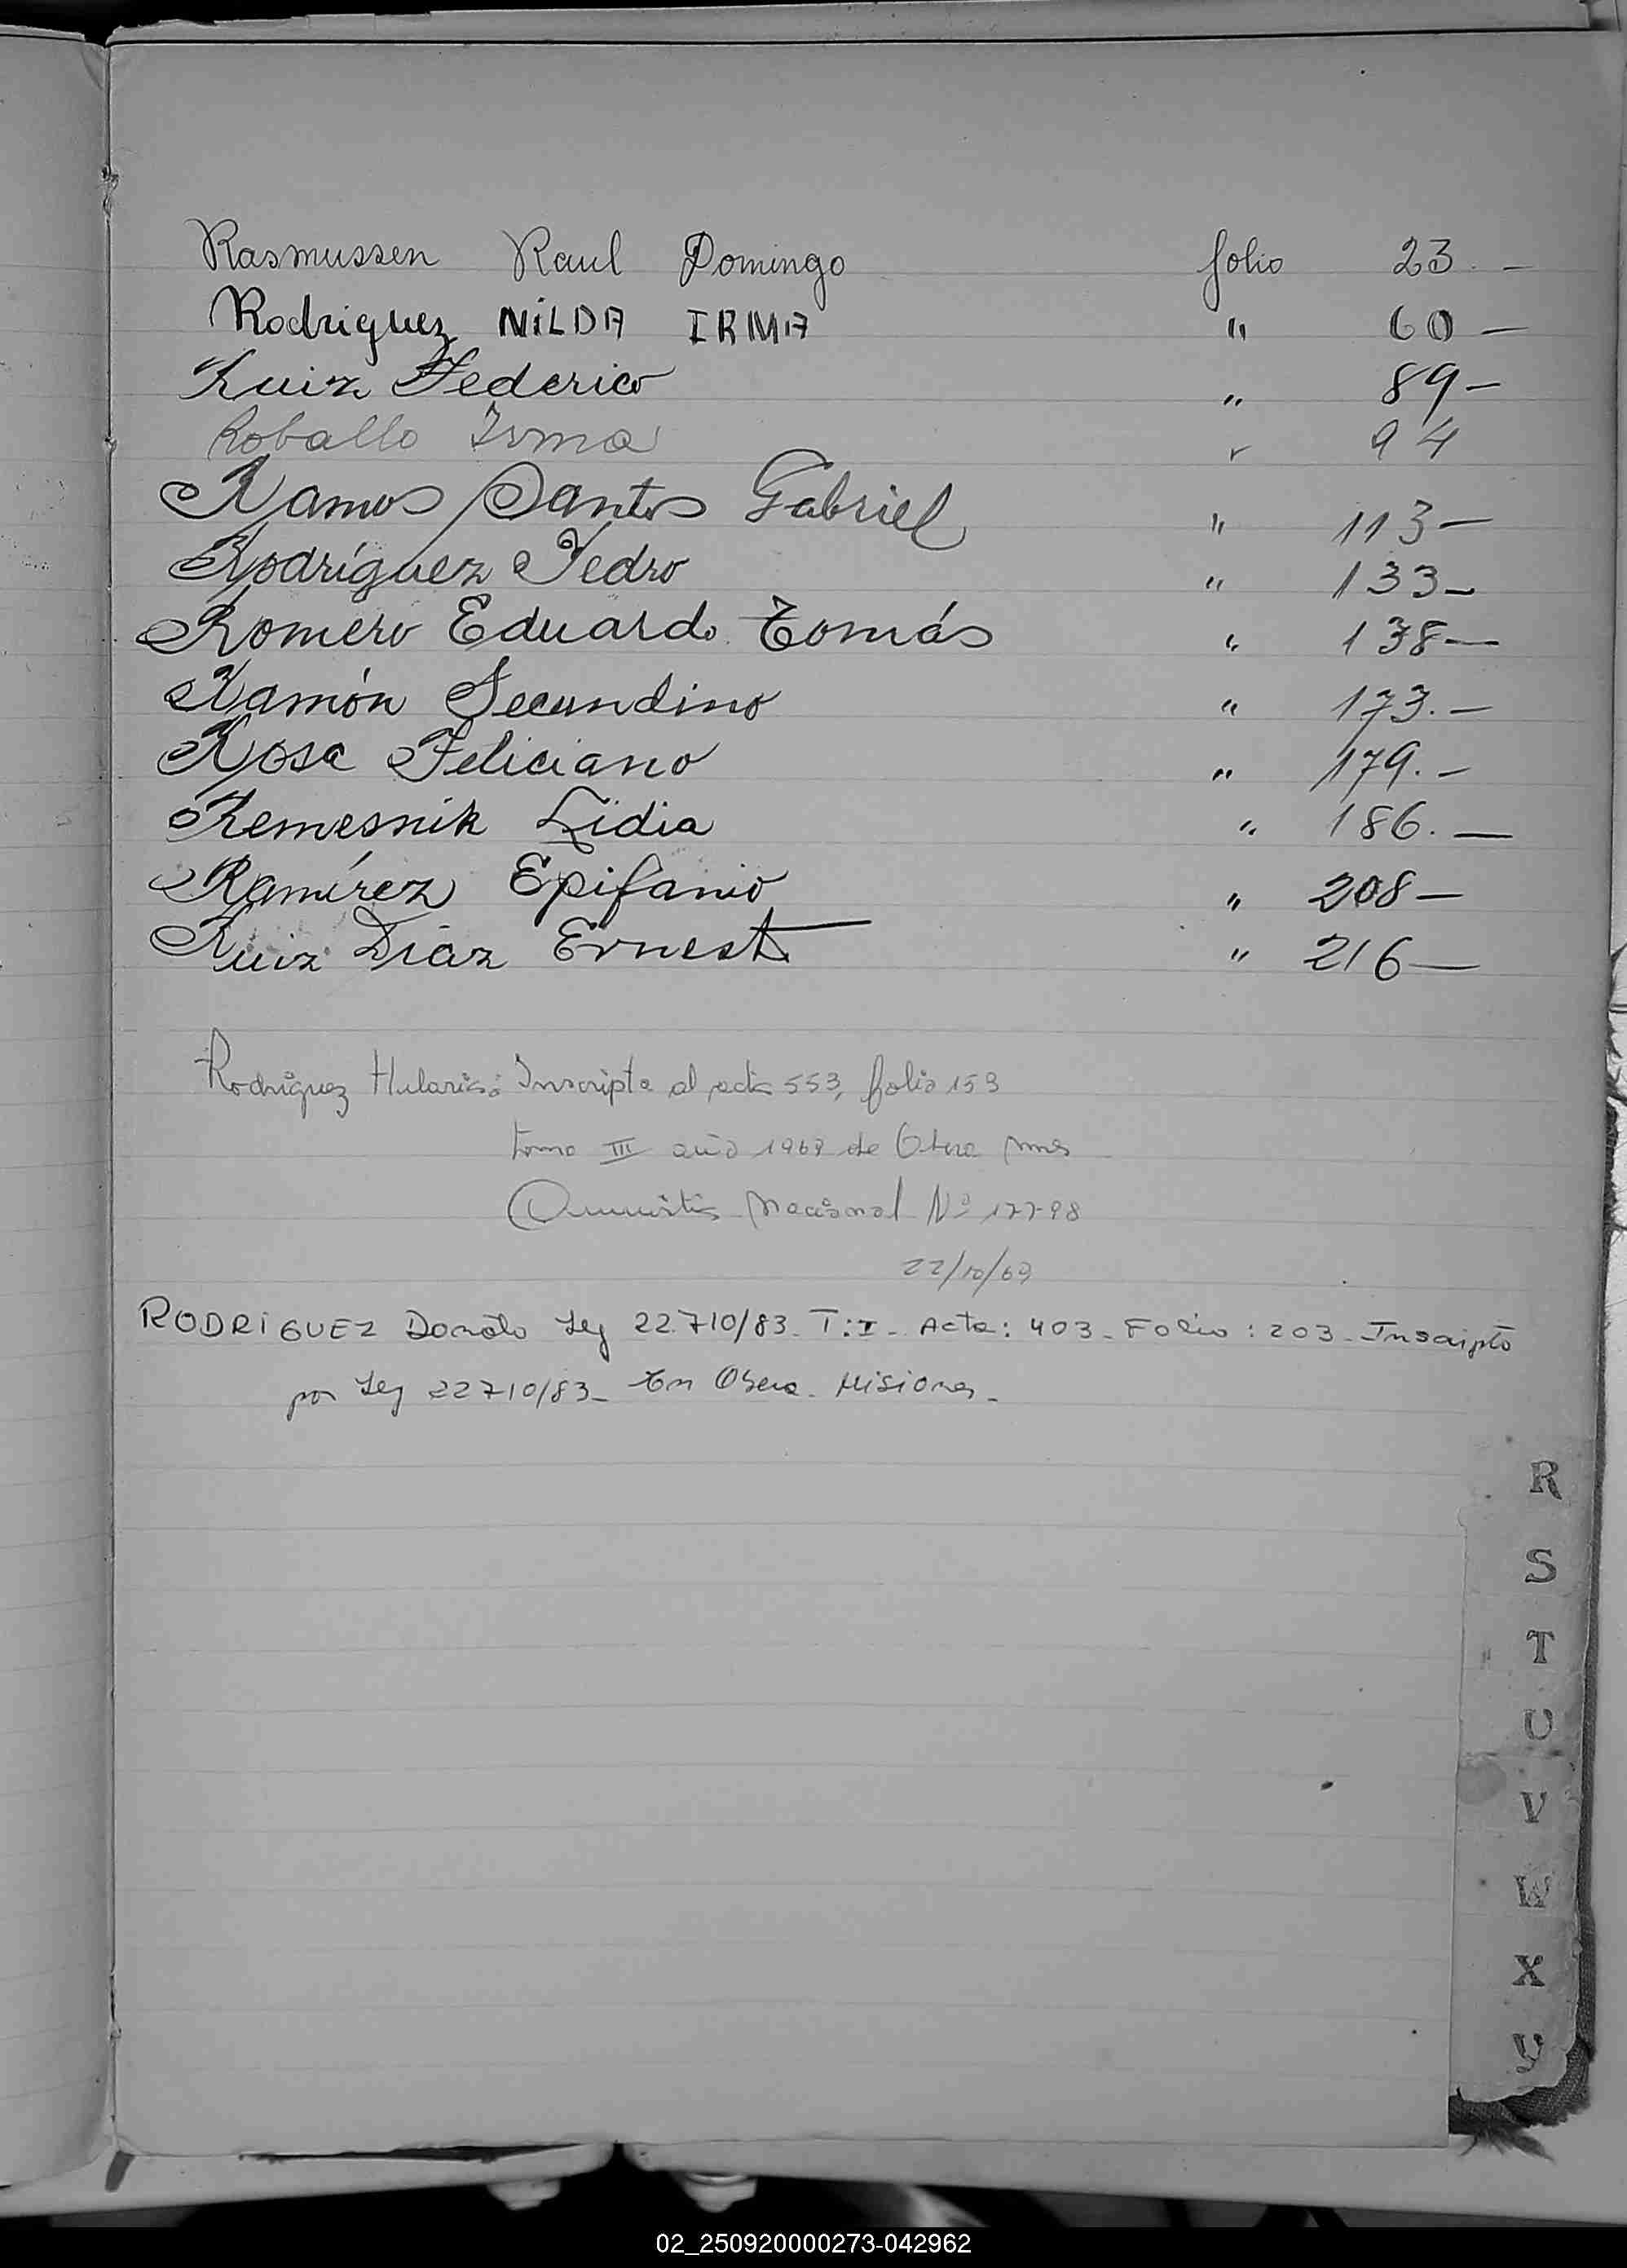 Rasmussen Raul Domingo folio 23.—
Rodriguez NiLDA IRMA " 60—
Ruiz Federico " 89—
Roballo Irma " 94
Ramos Santos Gabriel " 113—
Rodríguez Pedro " 133—
Romero Eduardo Tomás " 138—
Ramón Secundino " 173.—
Rosa Feliciano " 179.—
Remesnik Lidia " 186.—
Ramírez Epifanio " 208—
Ruiz Díaz Ernesto " 216—
Rodriguez Hilario: Inscripto al acta 553, folio 153
tomo III año 1969 de Obera Mnes
Amnistia Nacional Nº 17798
22/10/69
RODRiGUEZ Donato Ley 22.710/83. T:I- Acta: 403- Folio: 203- Inscripto
por Ley 22710/83- En Obera. Misiones-
R
S
T
U
V
W
X
Y
02_250920000273-042962